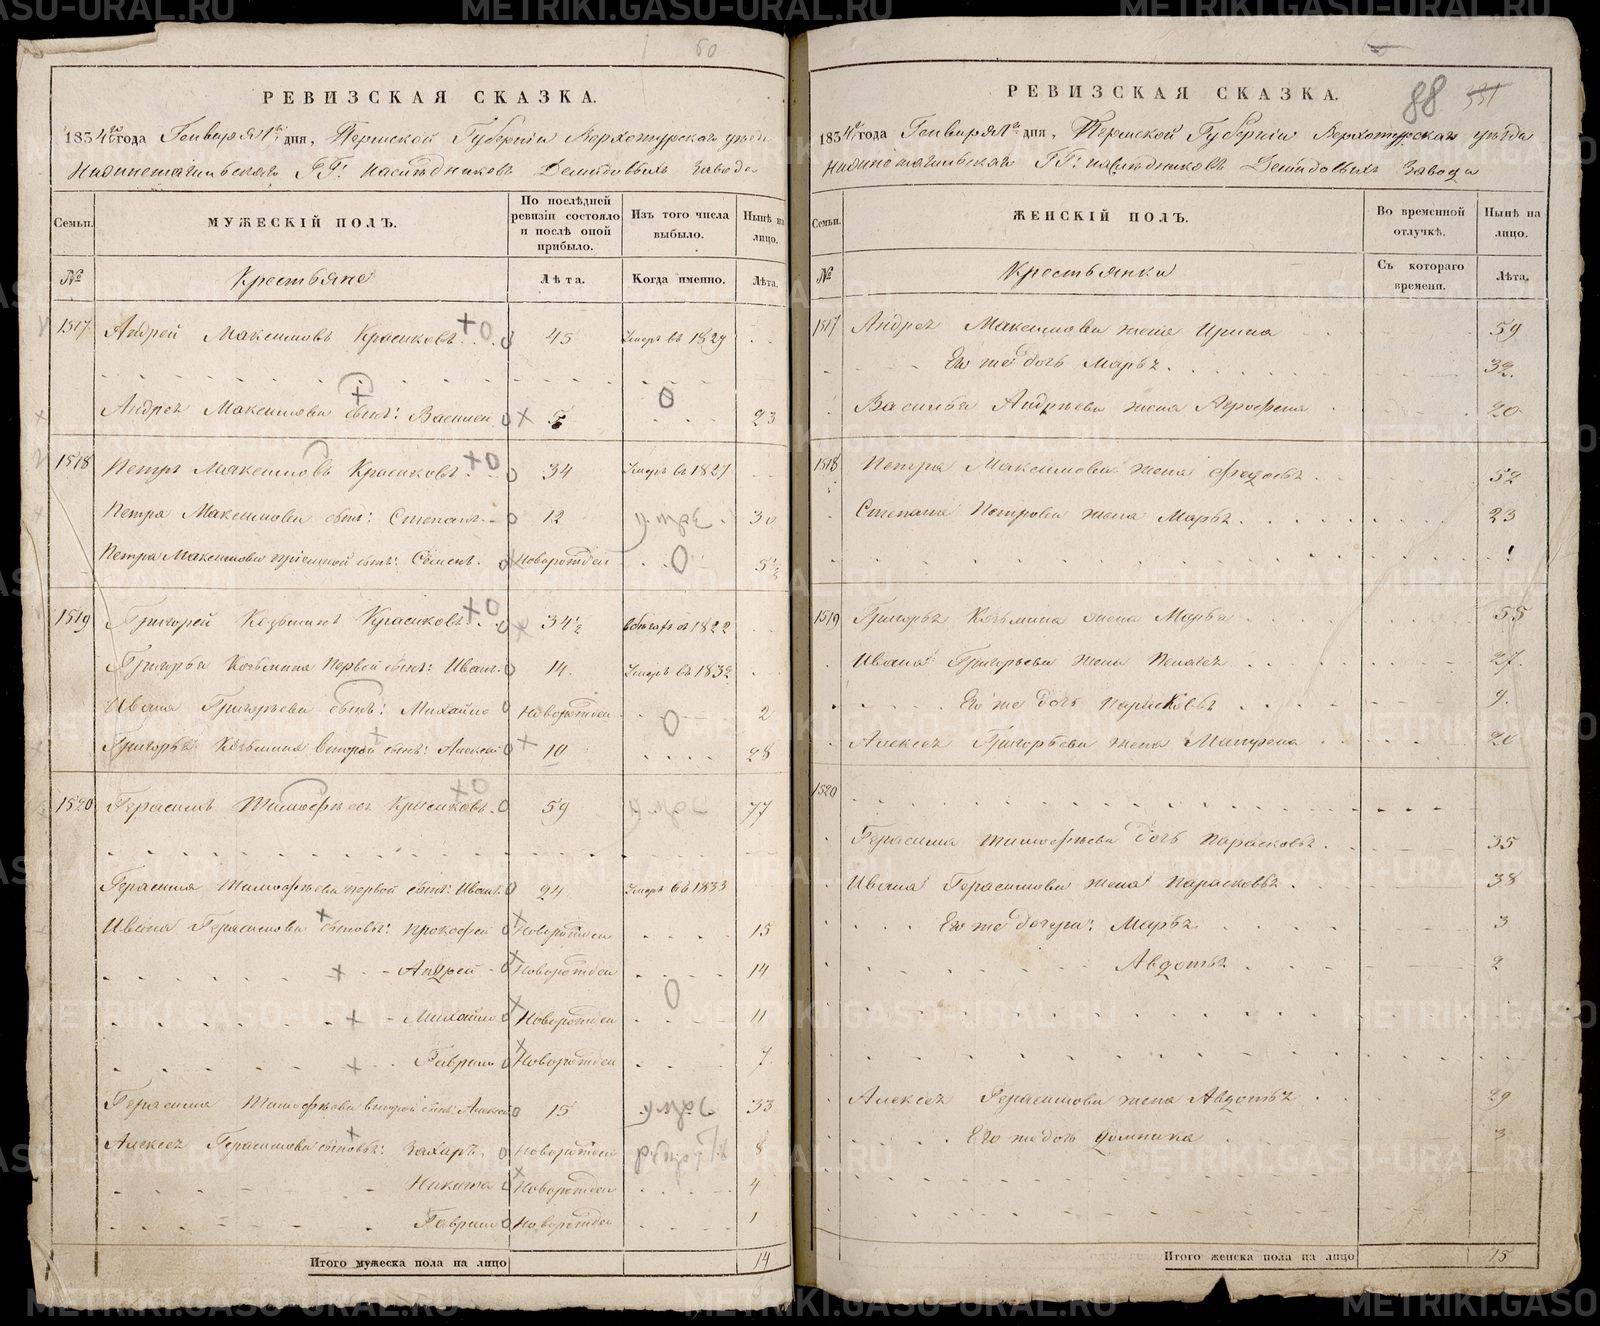 60
РЕВИЗСКАЯ СКАЗКА.
1834го года Генваря 1го дня, Пермской Губернии Верхотурскаго уезда
Нижнетагильскаго ГГ: наследниковъ Демидовыхъ Завода
Семьи.
МУЖЕСКІЙ ПОЛЪ.
По послѣдней ревизіи состояло и послѣ оной прибыло.
Изъ того числа выбыло.
Нынѣ на лицо.
№
Крестьяне
Лѣта.
Когда именно.
Лѣта.
1517 Андрей Максимовъ Красиковъ 45 Умеръ въ 1829
Андрея Максимова сынъ: Василей 5 23
1518 Петръ Максимовъ Красиковъ 34 Умеръ въ 1827
Петра Максимова сынъ: Степанъ 12 30
Петра Максимова приемной сынъ: Семенъ Новорожден 5½
1519 Григорей Козьминъ Красиковъ 34½ в бегахъ съ 1822
Григорья Козьмина первой сынъ: Иванъ 14 Умеръ въ 1832
Ивана Григорьева сынъ: Михайло Новорожден 2
Григорья Козьмина второй сынъ: Алексей 10 28
1520 Герасимъ Тимофеевъ Красиковъ 59 77
Герасима Тимофеева первой сынъ: Иванъ 24 Умеръ въ 1833
Ивана Герасимова сыновья: Прокофей Новорожден 15
Андрей Новорожден 14
Михайло Новорожден 11
Гаврило Новорожден 7
Герасима Тимофеева второй сынъ: Алексей 15 33
Алексея Герасимова сыновья: Захаръ Новорожден 8
Никита Новорожден 4
Гаврило Новорожден 1
Итого мужеска пола на лицо 14
88 551
РЕВИЗСКАЯ СКАЗКА.
1834го года Генваря 1го дня, Пермской Губернии Верхотурскаго уезда
Нижнетагильскаго ГГ: наследниковъ Демидовыхъ Завода
Семьи.
ЖЕНСКІЙ ПОЛЪ.
Во временной отлучкѣ.
Нынѣ на лицо.
№
Крестьянки
Съ котораго времени.
Лѣта.
1517 Андрея Максимова жена Ирина 59
Его же дочь Марья 32
Василья Андреева жена Агрофена 20
1518 Петра Максимова жена Федосья 52
Степана Петрова жена Марья 23
1519 Григорья Козьмина жена Марья 55
Ивана Григорьева жена 27
Его же дочь Парасковья 9
Алексея Григорьева жена Матрена 20
1520
Герасима Тимофеева дочь Парасковья 35
Ивана Герасимова жена Парасковья 38
Его же дочери: Марья 3
Авдотья 2
Алексея Герасимова жена Авдотья 29
Его же дочь Домника 3
Итого женска пола на лицо 15
METRIKI.GASO-URAL.RU